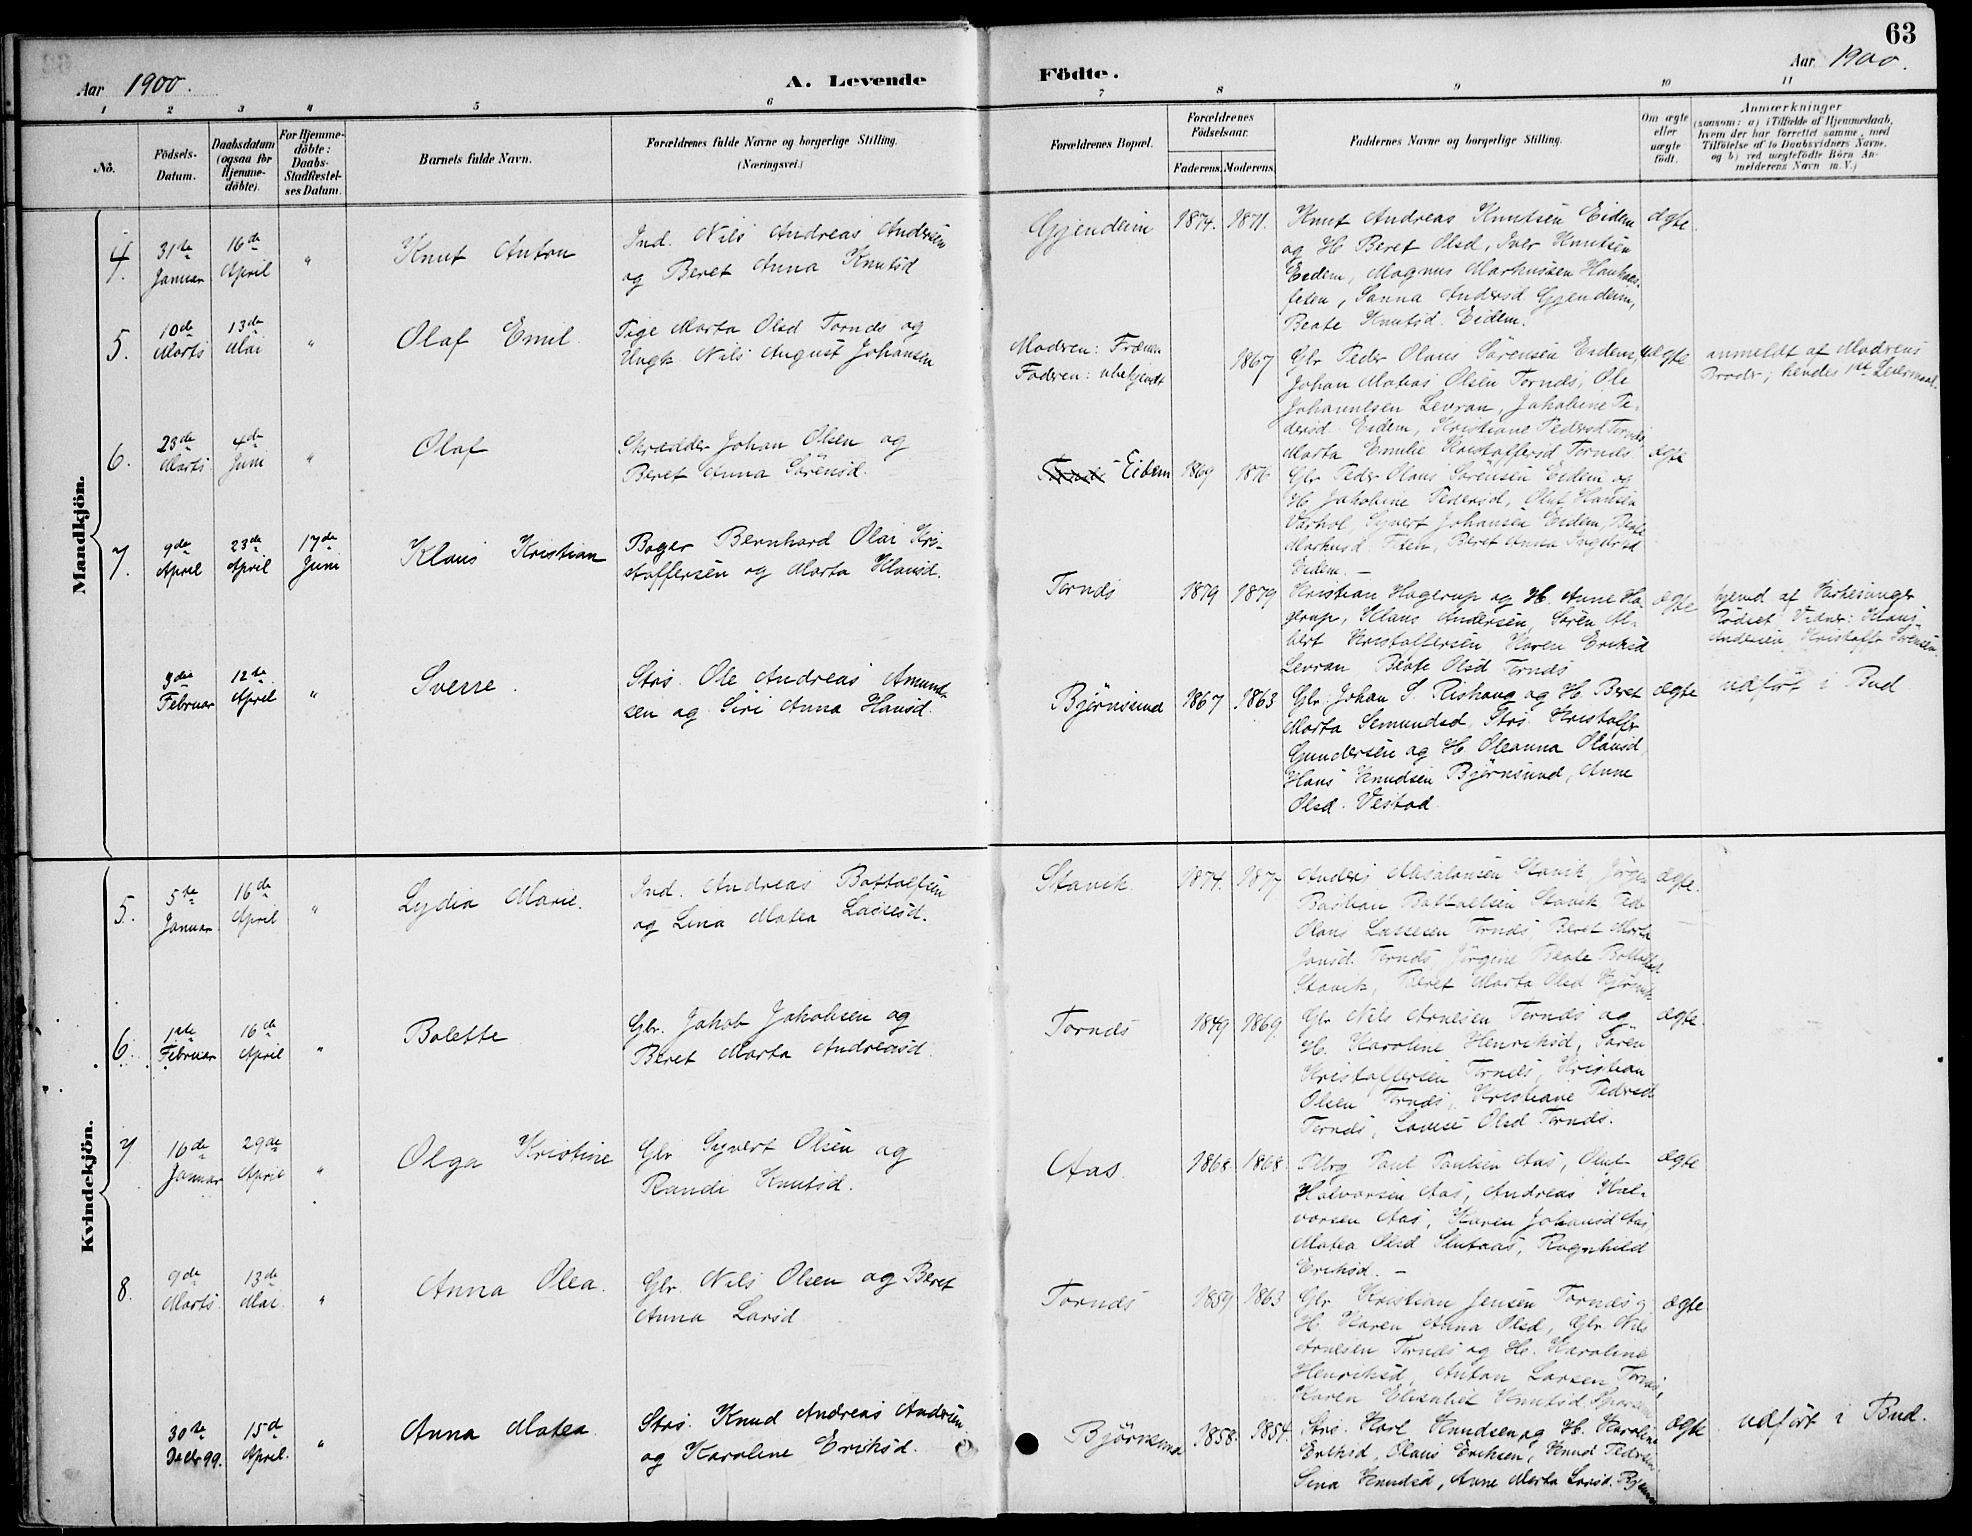 63
Aar 1900.
A. Levende
Födte.
Aar 1900.
1 2 3 4 5 6 7 8 9 10 11
No.
Födsels-
Datum.
Daabsdatum
(ogsaa for
Hjemme-
döbte).
For Hjemme-
döbte:
Daabs-
Stadfæstel-
ses Datum.
Barnets fulde Navn.
Forældrenes fulde Navne og borgerlige Stilling.
(Næringsvei.)
Forældrenes Bopæl.
Forældrenes
Födselsaar.
Faderens.
Moderens.
Faddernes Navne og borgerlige Stilling.
Om ægte
eller
uægte
födt.
Anmærkninger
(saasom: a) i Tilfælde af Hjemmedaab,
hvem der har forrettet samme, med
Tilföielse af to Daabsvidners Navne.
og b) ved uægtefödte Börn An-
melderens Navn m. V.)
Mandkjön.
4.
31te
Januar
16de
April
"
Knut Anton
Ind. Nils Andreas Andersen
og Beret Anna Knutsd
Gjendem
1874.
1871.
Knut Andreas Knutsen Eidem
og H. Beret Olsd, Iver Knutsen
Eidem, Magnus Markussen Haukaas-
feten, Sanna Andersd Gjendem,
Beate Knutsd. Eidem.
ægte
5.
10de
Marts
13de
Mai
"
Olaf Emil.
Pige Marta Olsd Tornes og
Ungk. Nils August Johansen
Modren: Frænen
Faderen: ubekjendt
1867
Gbr. Peder Olaus Sørensen Eidem,
Johan Matias Olsen Tornes, Ole
Johannesen Levran, Jakobine Pe-
dersd. Eidem, Kristiane Pedersd Tornes,
Marta Emilie Kristoffersd Tornes
uægte
anmeldt af Modrens
Broder; hendes 1ste Leiermaal.
6.
23de
Marts
4de
Juni
"
Olaf
Skrædder Johan Olsen og
Beret Anna Sörensd.
Eidem
1869
1876
Gbr. Peder Olaus Sørensen Eidem og
H. Jakobine Pedersd, Oluf Hansen
Varhol, Syvert Johansen Eidem, Beate
Markusd Feten, Beret Anna
Eidem. –
ægte
7.
9de
April
23de
April
17de
Juni
Klaus Kristian
Bager Bernhard Olai Kri-
stoffersen og Marta Hansd.
Tornes
1879
1879
Kristian Hagerup og H. Anne Ha-
gerup, Klaus Andersen, Sören Al-
bert Kristoffersen, Karen Eriksd
Levran, Beate Olsd Tornes
ægte
hjemd. af Kirkesanger
Rødset Vidner: Klaus
Andersen, Kristoffer Sørensen.
3die
Februar
12te
April
"
Sverre.
Strs. Ole Andreas Amund-
sen og Siri Anna Hansd.
Björnsund
1867
1863
Gbr. Johan S. Rishaug og H. Beret
Marta Semundsd, Strs. Kristoffer
Gundersen og H. Oleanna Olausd,
Hans Knudsen Björnsund, Anne
Olsd. Vestad
ægte
udført i Bud
Kvindekjön.
5.
5te
Januar
16de
April
"
Lydia Marie.
Ind. Andreas Bottolfsen
og Lina Matea Lassesd.
Stavik.
1874.
1877
Anders Absalonsen Stavik, Jørgen
Bastian Bottolfsen Stavik, Peder
Olaus Lassesen Tornes, Beret Marta
Jonsd. Tornes, Jörgine Beate Bottolfsd
Stavik, Beret Marta Olsd
ægte.
6.
1ste
Februar
16de
April
"
Bolette
Gbr. Jakob Jakobsen og
Beret Marta Andreasd.
Tornes
1849
1869.
Gbr. Nils Arnesen Tornes og
H. Karoline Henriksd, Sören
Kristoffersen Tornes, Kristian
Olsen Tornes, Kristiane Pedersd
Tornes, Lovise Olsd Tornes.
ægte.
7
16de
Januar
29de
April
"
Olga Kristine
Gbr Syvert Olsen og
Randi Knutsd.
Aas.
1868.
1868.
Paul Paulsen Aas, Oluf
Halvorsen Aas, Andreas Hal-
vorsen Aas, Karen Johansd Aas,
Matea Olsd Slutaas, Ragnhild
Eriksd. –
ægte
8.
9de
Marts
13de
Mai.
"
Anna Olea.
Gbr. Nils Olsen og Beret
Anna Larsd
Tornes
1859
1863
Gbr. Kristian Jensen Tornes og
H. Karen Anna Olsd, Gbr. Nils
Arnesen Tornes og H. Karoline
Henriksd, Anton Larsen Tornes,
Karen Elisabet Knutsd
ægte
30te
Decbr 99.
15d
April.
"
Anna Matea
Strs. Knud Andreas Andersen
og Karoline Eriksd.
Björnsund
1858.
1854.
Strs. Karl Knudsen og H. Karoline
Eriksd, Olaus Eriksen, Knud Pedersen
Sina Knudsd, Anne Marta Larsd.
ægte
udført i Bud.